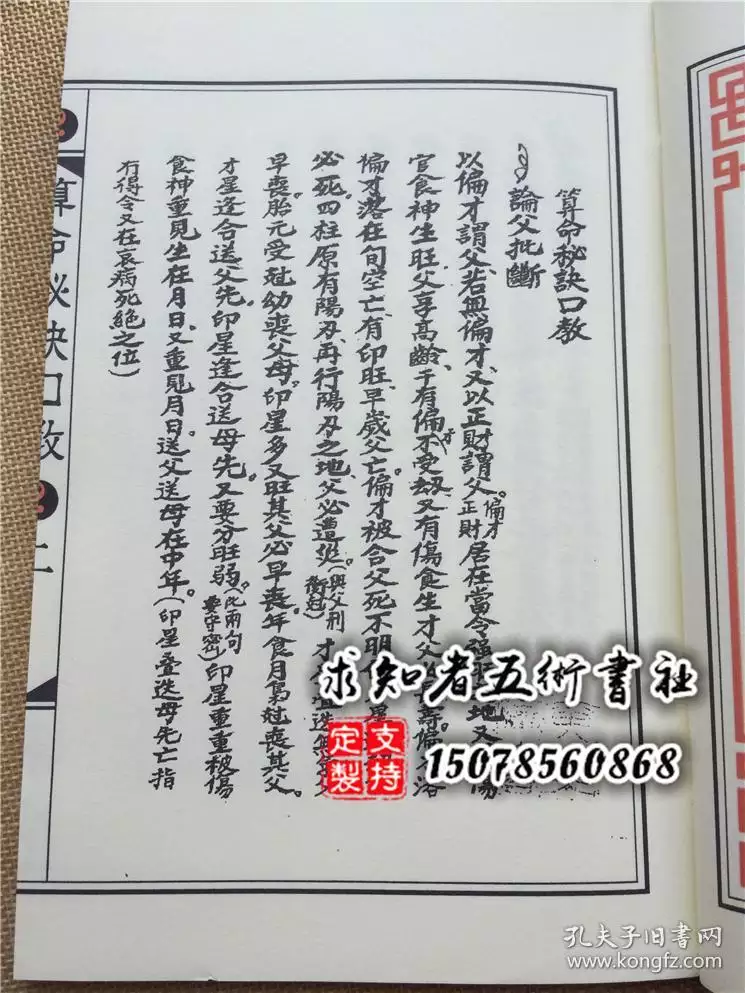 算命秘訣口教
論父批斷
以偏才謂父若無偏才又以正財謂父。偏才正財居在當令強旺地又
官食神生旺父享高齡、于有偏才不受劫又有傷食生才父
偏才落在旬空亡有印旺、早歲父亡。偏才被合父死不明
必死。四柱原有陽刃、再行陽刃之地、父必遭從(與父刑衝尅)才
早喪。胎元受尅幼喪父母。印星多又旺其父必早喪。年食月梟尅喪其父。
才星逢合送父先。印星逢合送母先。又要分旺弱。(此兩句要守密)印星重重被傷
食神重見生在月日、又重見月日。送父送母在中年。(印星疊迭母先亡指
有得令又在衰病死絕之位)
算命秘訣口教
二
求知者五術書社
支持定製
15078560868
孔夫子旧書网
www.kongfz.com